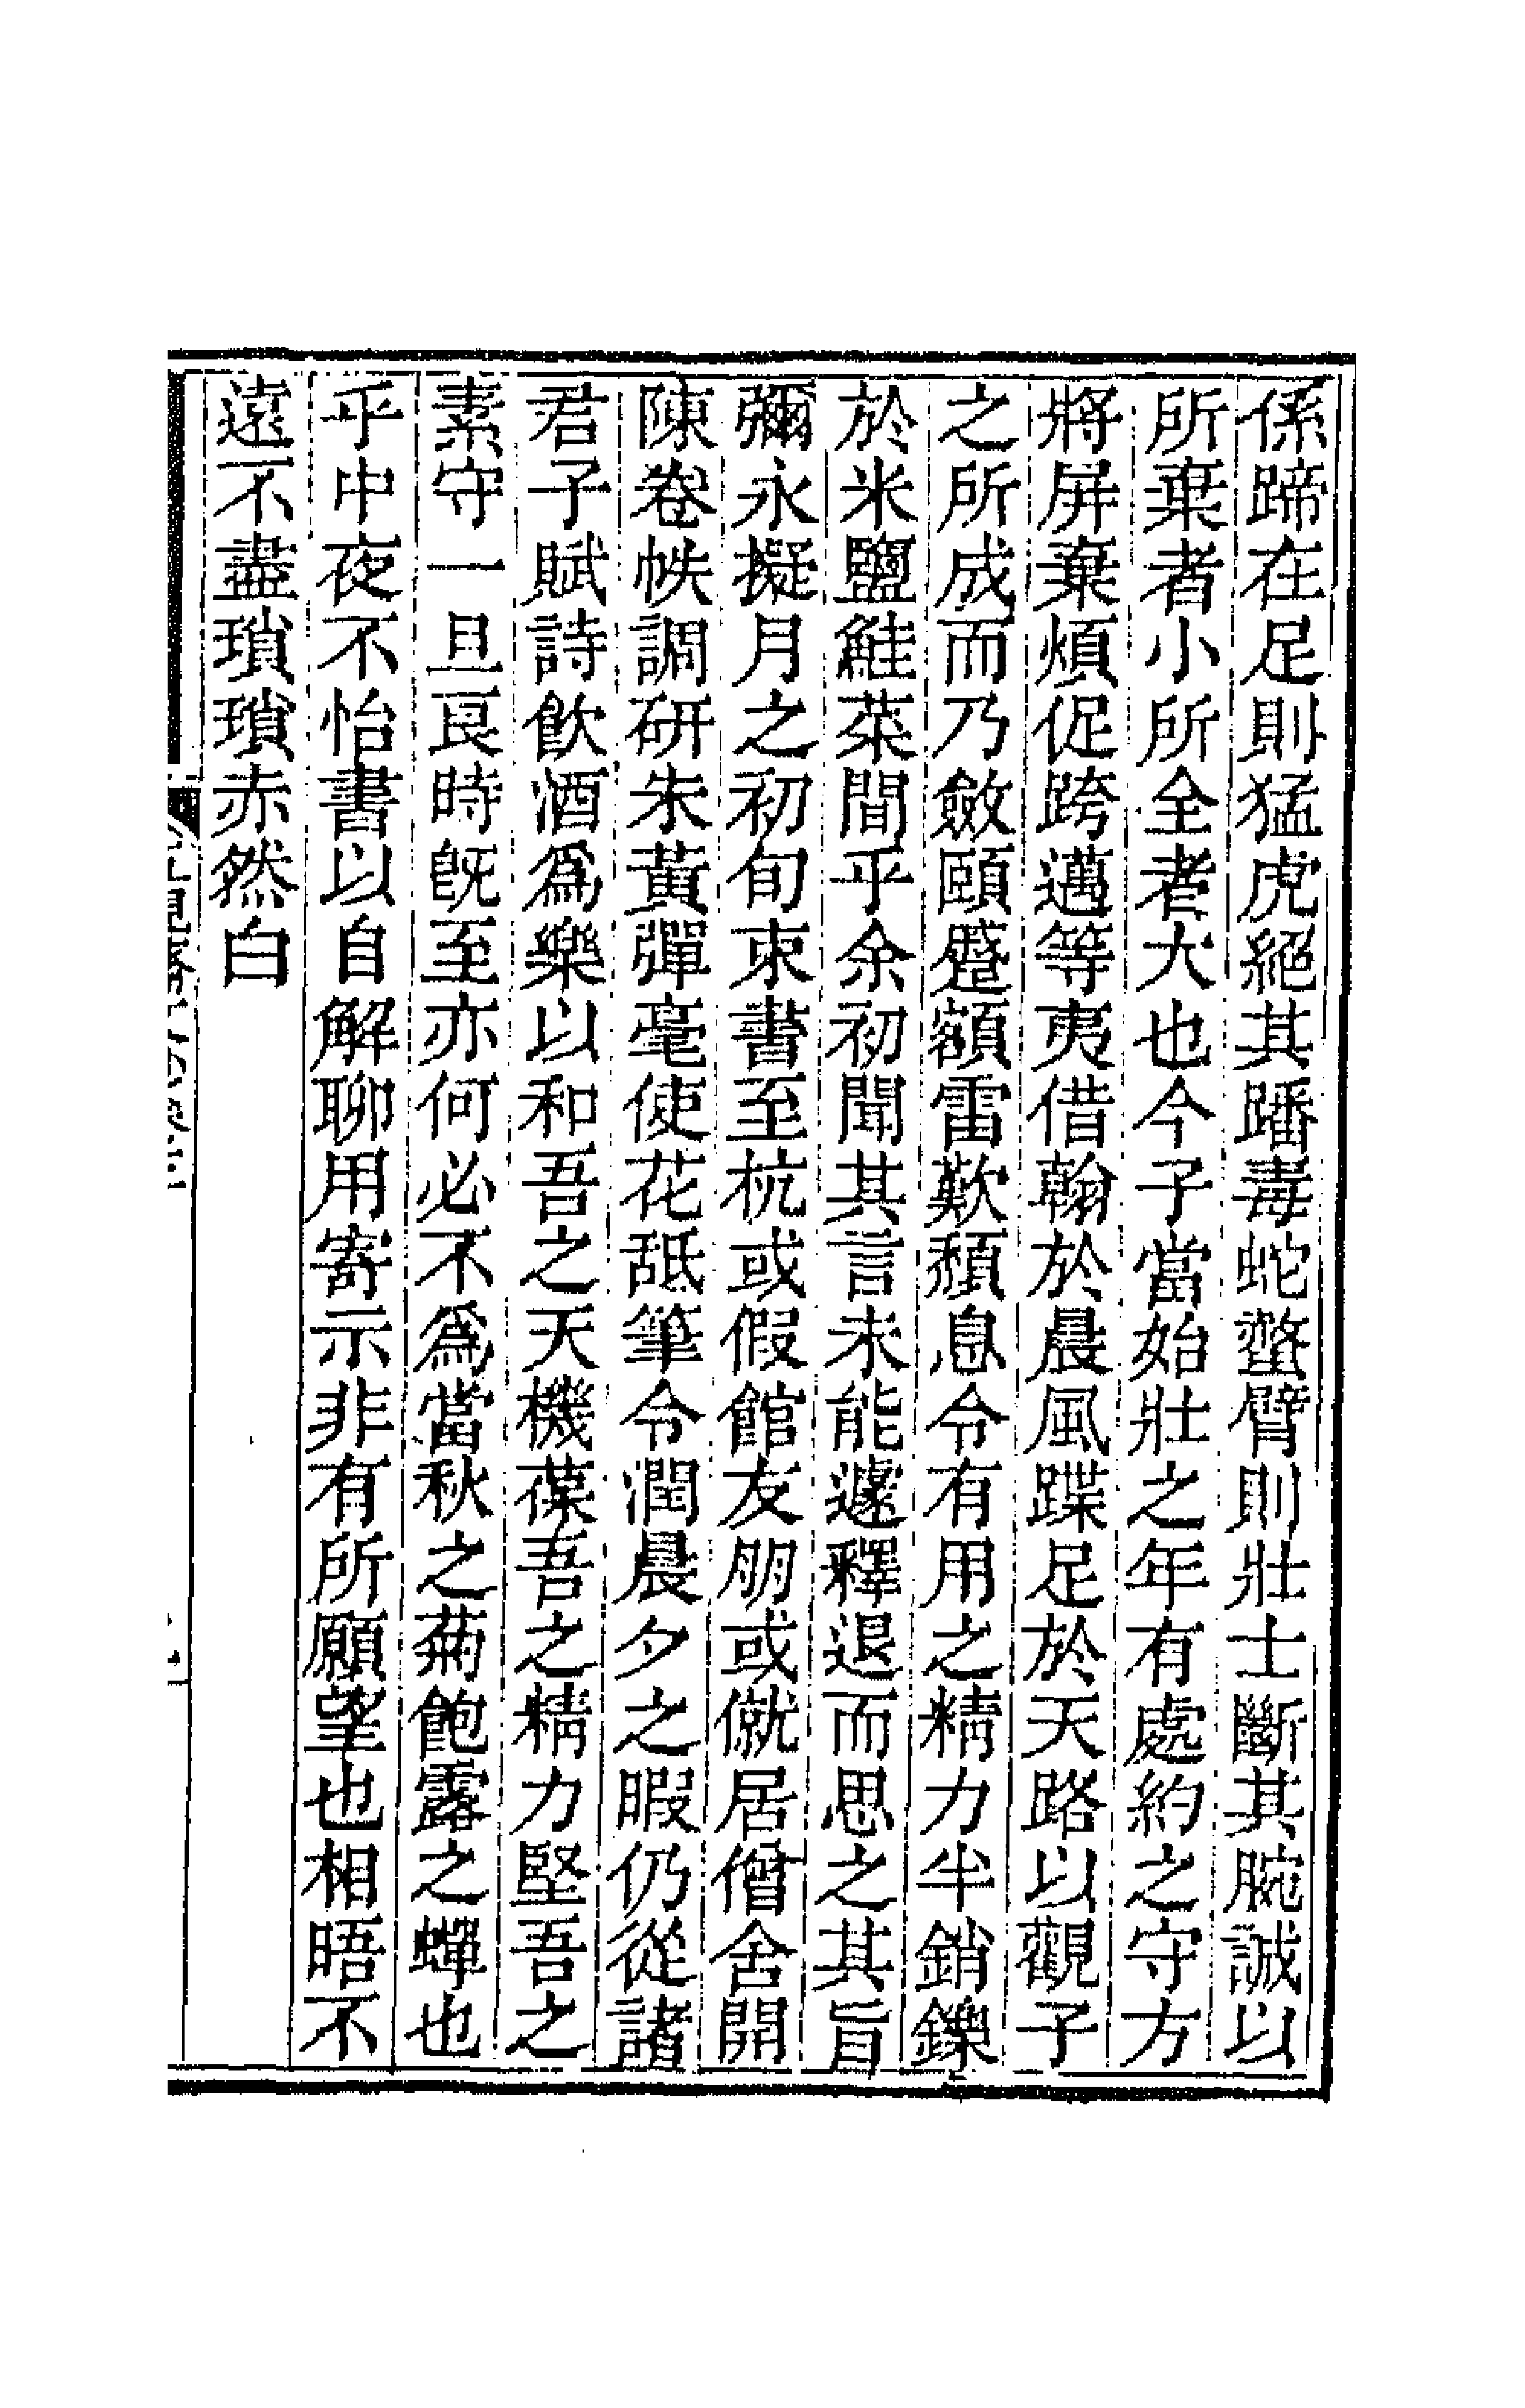 係蹄在足則猛虎絕其蹯毒蛇螫臂則壯士斷其腕誠以
所棄者小所全者大也今子當始壯之年有處約之守方
將屏棄煩促跨邁等夷借翰於晨風蹀足於天路以觀子
之所成而乃斂頤蹙額雷歎頹息令有用之精力半銷鑠
於米鹽鮭菜間乎余初聞其言未能遽釋退而思之其旨
彌永擬月之初旬束書至杭或假館友朋或僦居僧舍開
陳卷帙調研朱黃彈毫使花舐筆令潤晨夕之暇仍從諸
君子賦詩飲酒爲樂以和吾之天機葆吾之精力堅吾之
素守一旦良時既至亦何必不爲當秋之菊飽露之蟬也
乎中夜不怡書以自解聊用寄示非有所願望也相晤不
遠不盡瑣瑣赤然白